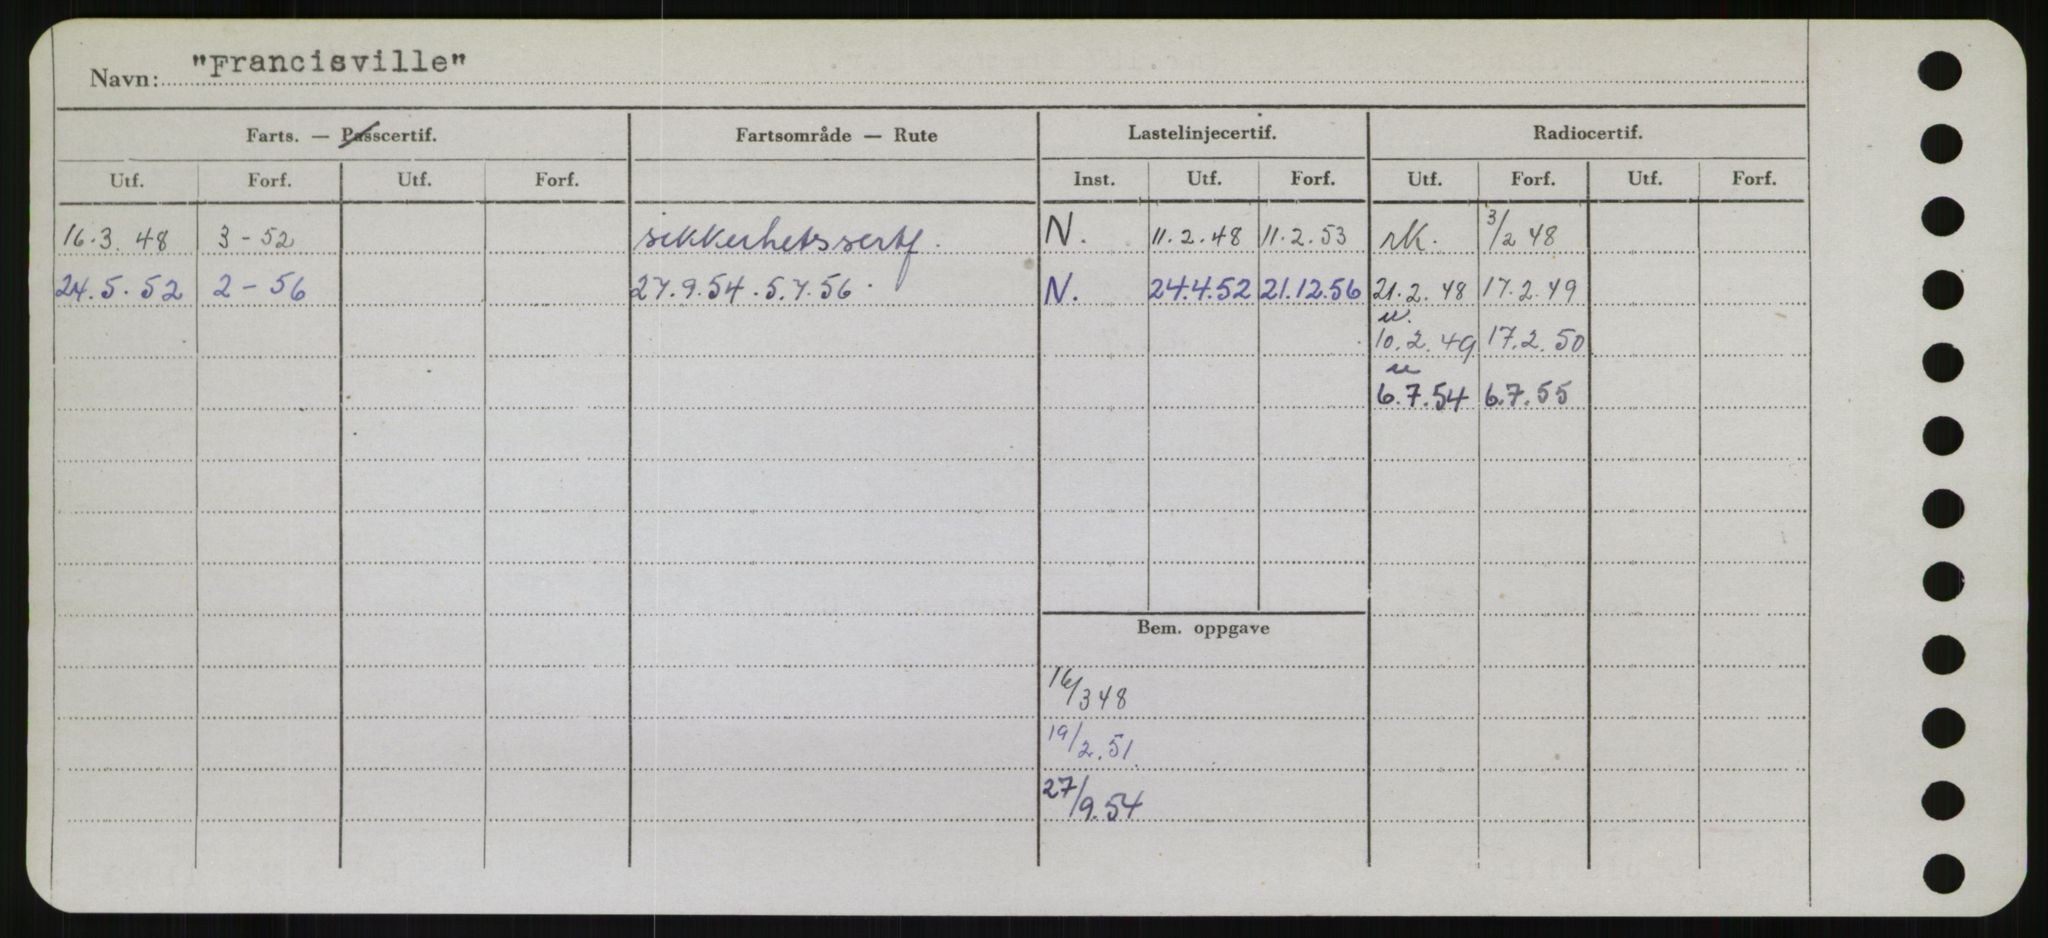 Navn: "Francisville"
Farts. — Passcertif. Fartsområde — Rute Lastelinjecertif. Radiocertif.
Utf. Forf. Utf. Forf. Inst. Utf. Forf. Utf. Forf. Utf. Forf.
16.3.48 3-52 sikkerhetssertf. N. 11.2.48 11.2.53 rk. 3/2 48
24.5.52 2-56 27.9.54. 5.7.56. N. 24.4.52 21.12.56 21.2.48 17.2.49
u.
10.2.49 17.2.50
u
6.7.54 6.7.55
Bem. oppgave
16/3 48
19/2.51.
27/9.54